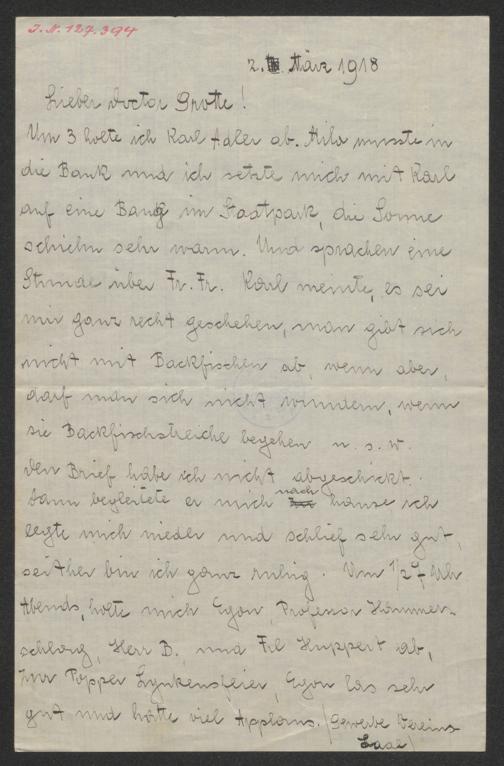 J.N. 127.394
2. März 1918
Lieber Doctor Grotte!
Um 3 holte ich Karl Adler ab. Mila musste in
die Bank und ich setzte mich mit Karl
auf eine Bank im Stadtpark, die Sonne
schien sehr warm. Und sprachen eine
Stunde über Fr. Fr. Karl meinte, es sei
mir ganz recht geschehen, man gibt sich
nicht mit Backfischen ab, wenn aber,
darf man sich nicht wundern, wenn
sie Backfischstreiche begehen u. s. w.
Den Brief habe ich nicht abgeschickt.
Dann begleitete er mich nach hause ich
legte mich nieder und schlief sehr gut,
seither bin ich ganz ruhig. Um 1/2 7 Uhr
Abends, holte mich Egon, Professor Hammer-
schlag, Herr B. und Frl Huppert ab,
zur Popper Lynkeusfeier, Egon las sehr
gut und hatte viel Applaus. (Gewerbe Vereins
Saal)